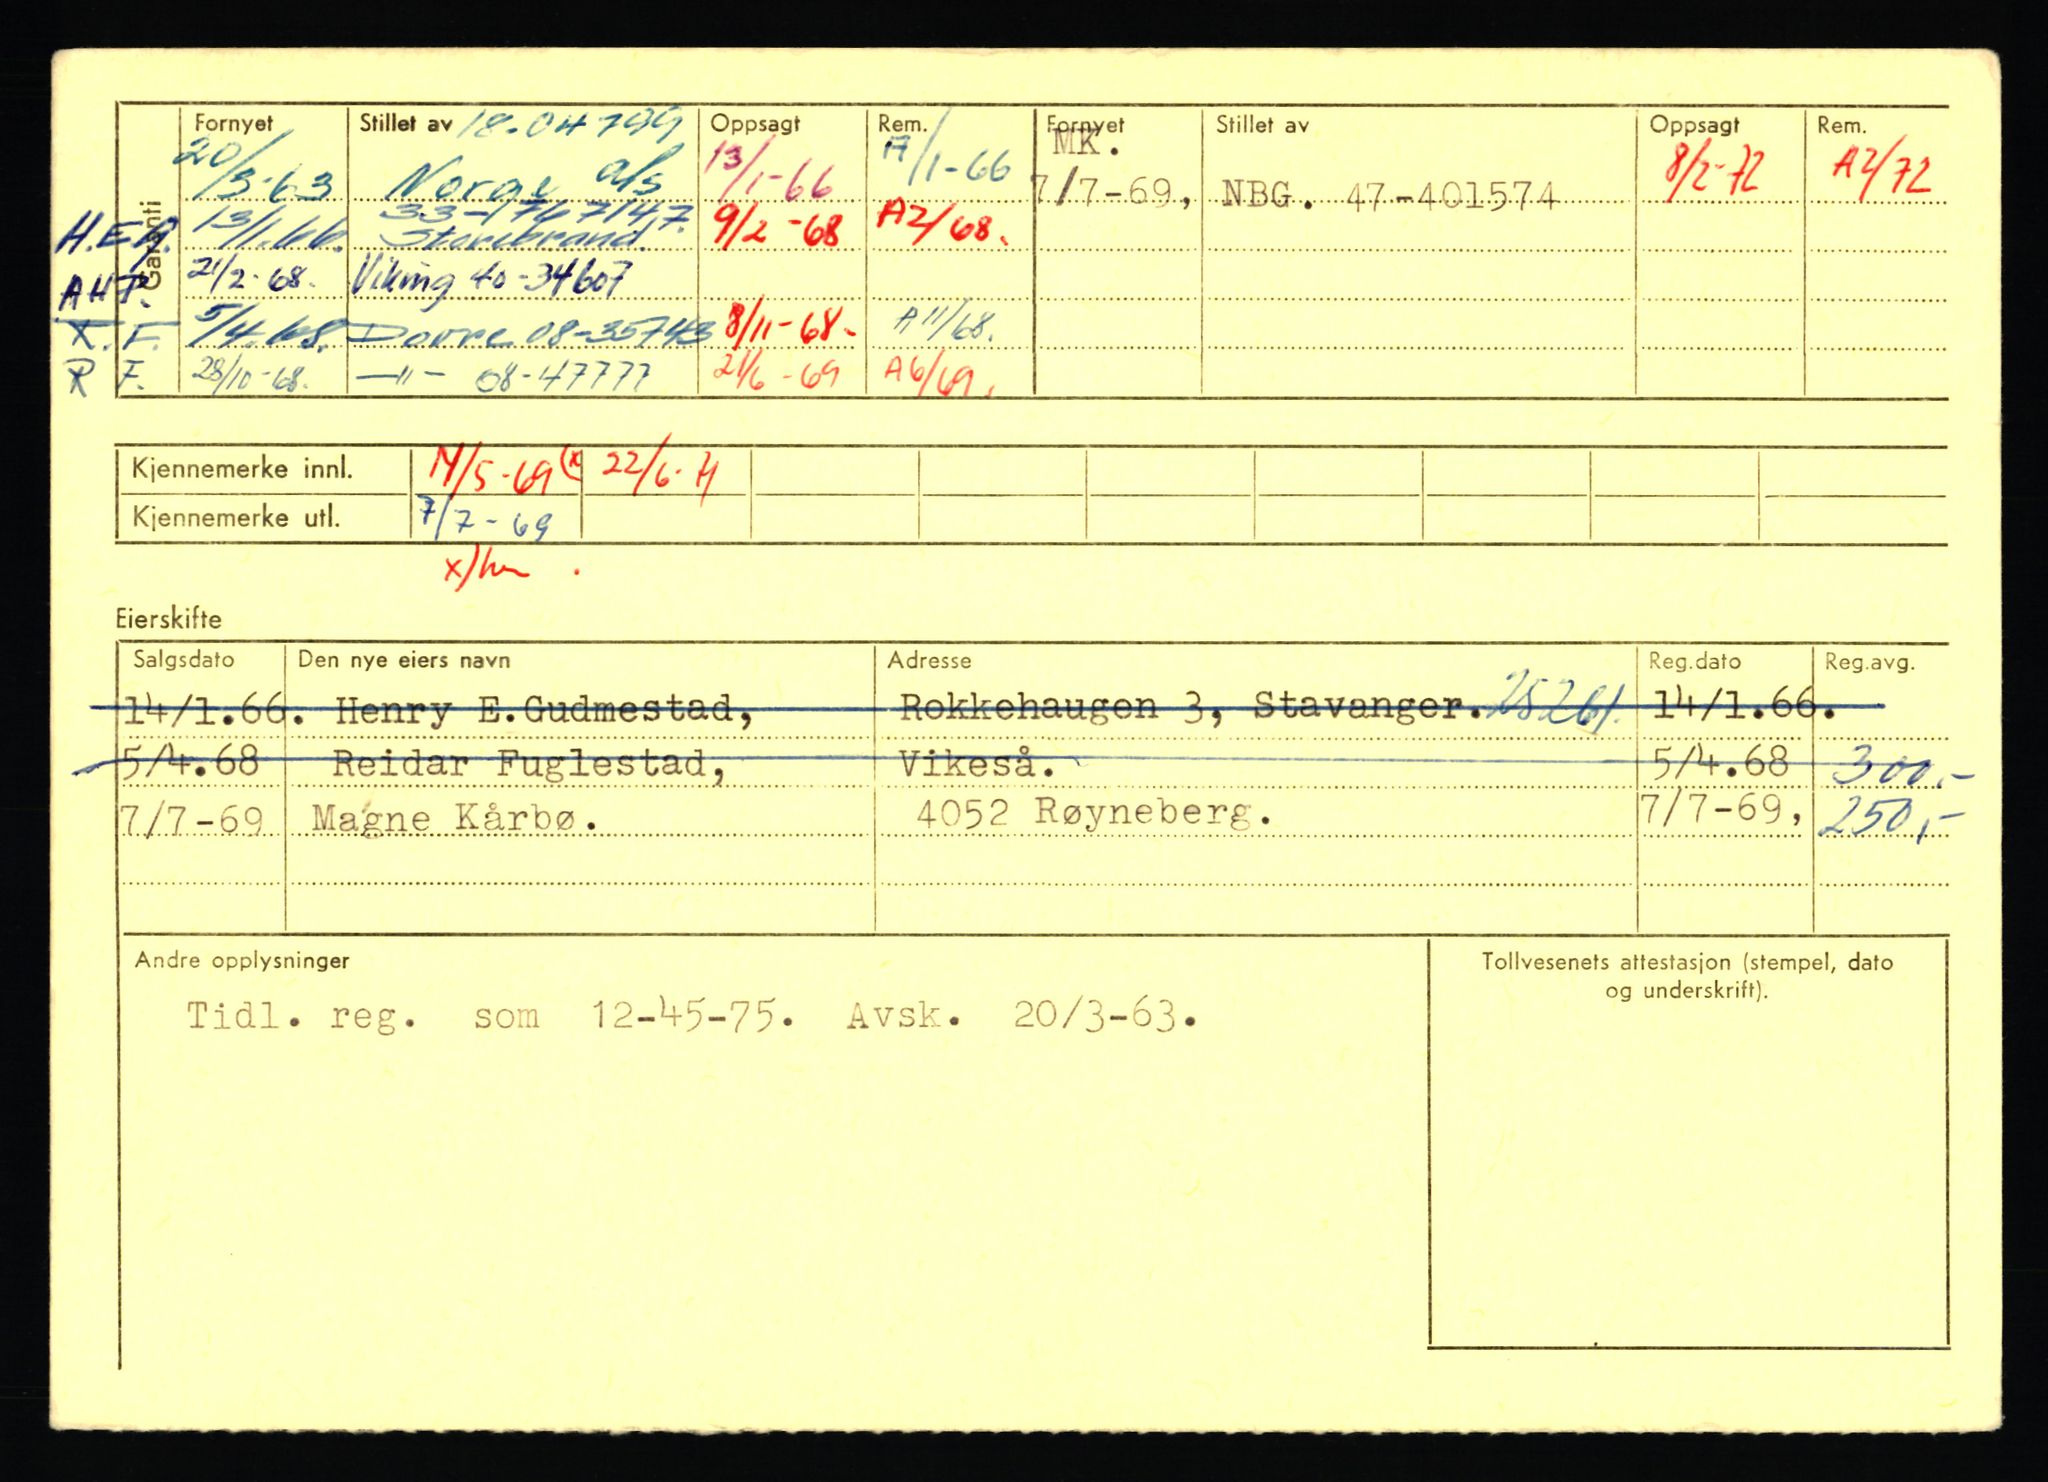 Garanti
Fornyet Stillet av 18-04799 Oppsagt Rem. Fornyet Stillet av Oppsagt Rem.
20/3-63 Norge a/s 13/1-66 A/1-66 MK. 7/7-69, NBG. 47-401574 8/2-72 A2/72
H.E.G. 13/1.66. 33-1767147. Storebrand. 9/2-68 A2/68.
21/2-68. Viking 40-34607
5/4.68. Dovre 08-35743 8/11-68- A11/68.
R F. 28/10-68. —"— 08-47777 21/6-69 A6/69.
Kjennemerke innl. 14/5-69 (x 22/6-71
Kjennemerke utl. 7/7-69
x)
Eierskifte
Salgsdato Den nye eiers navn Adresse Reg.dato Reg.avg.
14/1.66. Henry E.Gudmestad, Rokkehaugen 3, Stavanger. 25261. 14/1.66.
5/4.68 Reidar Fuglestad, Vikeså. 5/4.68 300,-
7/7-69 Magne Kårbø. 4052 Røyneberg. 7/7-69, 250,-
Andre opplysninger Tollvesenets attestasjon (stempel, dato
og underskrift).
Tidl. reg. som 12-45-75. Avsk. 20/3-63.